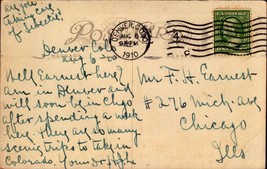 Are you
taking care
of
POST CARD
DENVER, COLO.
AUG 6
9 PM
1910
Denver Colo
Aug 6-10
Well Earnest here I
am in Denver and
will soon be in Chgo
after spending a week
here. There are so many
scenic trips to take in
Colorado. Yours Dr
Mr F. H. Earnest
#276 Mich. ave
Chicago
Ills